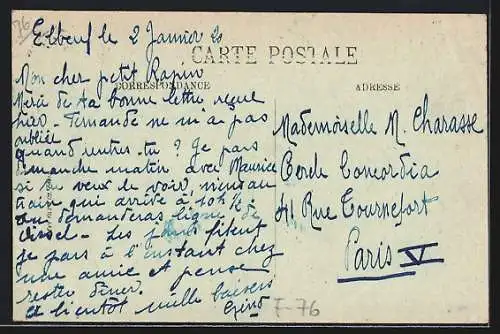 76
Elbeuf le 2 Janvier 20
CARTE POSTALE
CORRESPONDANCE
ADRESSE
Mon cher petit Lapin
Merci de ta bonne lettre reçue
hier. Fernande ne m'a pas
oubliée
quand rentres-tu? Je pars
dimanche matin avec Maurice
si tu veux le voir,
train qui arrive à 10h
tu demanderas ligne de
Les jours filent
je pars à l'instant chez
une amie et pense
rester dîner.
A bientôt mille baisers
Mademoiselle M. Charasse
Cercle Concordia
41 Rue Tournefort
Paris V
E-76